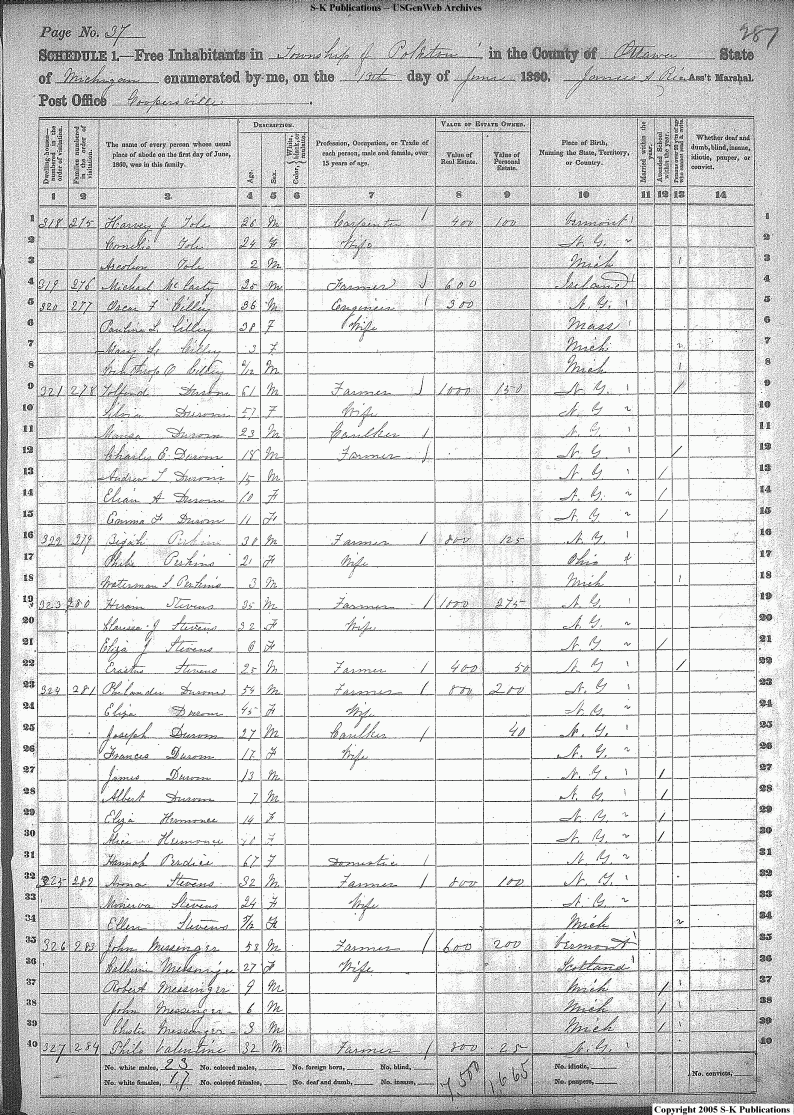 S-K Publications – USGenWeb Archives
Page No. 37
287
SCHEDULE 1.—Free Inhabitants in Township of Polkton in the County of Ottawa State
of Michigan enumerated by me, on the 13th day of June 1860. James Ass't Marshal.
Post Office Coopersville.
DESCRIPTION. VALUE OF ESTATE OWNED.
Dwelling-houses—numbered in the order of visitation. Families numbered in the order of visitation. The name of every person whose usual place of abode on the first day of June, 1860, was in this family. Age. Sex. Color, White, black, or mulatto. Profession, Occupation, or Trade of each person, male and female, over 15 years of age. Value of Real Estate. Value of Personal Estate. Place of Birth, Naming the State, Territory, or Country. Married within the year. Attended School within the year. Persons over 20 y'rs of age who cannot read & write. Whether deaf and dumb, blind, insane, idiotic, pauper, or convict.
1 2 3 4 5 6 7 8 9 10 11 12 13 14
1 318 275 Harvey J Tole 26 M Carpenter 400 100 Vermont 1
2 Cornelia Tole 24 F Wife N. Y. 2
3 Tole 2 M Mich 3
4 319 276 Michael McCarty 25 M Farmer 600 Ireland 4
5 320 277 Oscar F Cilley 36 M Engineer 300 N. Y. 5
6 Paulina L Cilley 28 F Wife Mass 6
7 Mary Cilley 3 F Mich 7
8 Winthrop O Cilley /12 M Mich 8
9 321 278 Durom 61 M Farmer 1000 150 N. Y. 9
10 Silvia Durom 57 F Wife N. Y. 10
11 Durom 23 M Caulker N. Y. 11
12 Charles E Durom 18 M Farmer N. Y. 12
13 Andrew T Durom 15 M N. Y. 13
14 A Durom 10 F N. Y. 14
15 Emma F Durom 11 F N. Y. 15
16 322 279 Perkins 38 M Farmer 800 125 N. Y. 16
17 Phebe Perkins 21 F Wife Ohio 17
18 Waterman S Perkins 3 M Mich 18
19 323 280 Hiram Stevens 35 M Farmer 1000 275 N. Y. 19
20 Clarissa J Stevens 32 F Wife N. Y. 20
21 Eliza J Stevens 6 F N. Y. 21
22 Erastus Stevens 25 M Farmer 400 50 N. Y. 22
23 324 281 Philander Durom 54 M Farmer 800 200 N. Y. 23
24 Eliza Durom 45 F Wife N. Y. 24
25 Joseph Durom 27 M Caulker 40 N. Y. 25
26 Francis Durom 17 F Wife N. Y. 26
27 James Durom 13 M N. Y. 27
28 Albert Durom 7 M N. Y. 28
29 Eliza Hermonce 14 F N. Y. 29
30 Alice Hermonce F N. Y. 30
31 Hannah Perdice 67 F Domestic N. Y. 31
32 325 282 Stevens 32 M Farmer 800 100 N. Y. 32
33 Minerva Stevens 24 F Wife N. Y. 33
34 Ellen Stevens /12 F Mich 34
35 326 283 John Messinger 58 M Farmer 600 200 Vermont 35
36 Messinger 27 F Wife Scotland 36
37 Robert Messinger 9 M Mich 37
38 John Messinger 6 M Mich 38
39 Messinger 3 M Mich 39
40 327 284 Philo Valentine 32 M Farmer 800 25 N. Y. 40
No. white males, 23 No. colored males, No. foreign born, No. blind, 7,500 1,665 No. idiotic, No. convicts,
No. white females, 17 No. colored females, No. deaf and dumb, No. insane, No. paupers,
Copyright 2005 S-K Publications